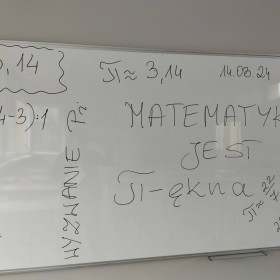 3,14
π≈3,14
14.03.24
4-3):1
WYZWANIE Pi
MATEMATYK
JEST
π-ękna
π≈22/7